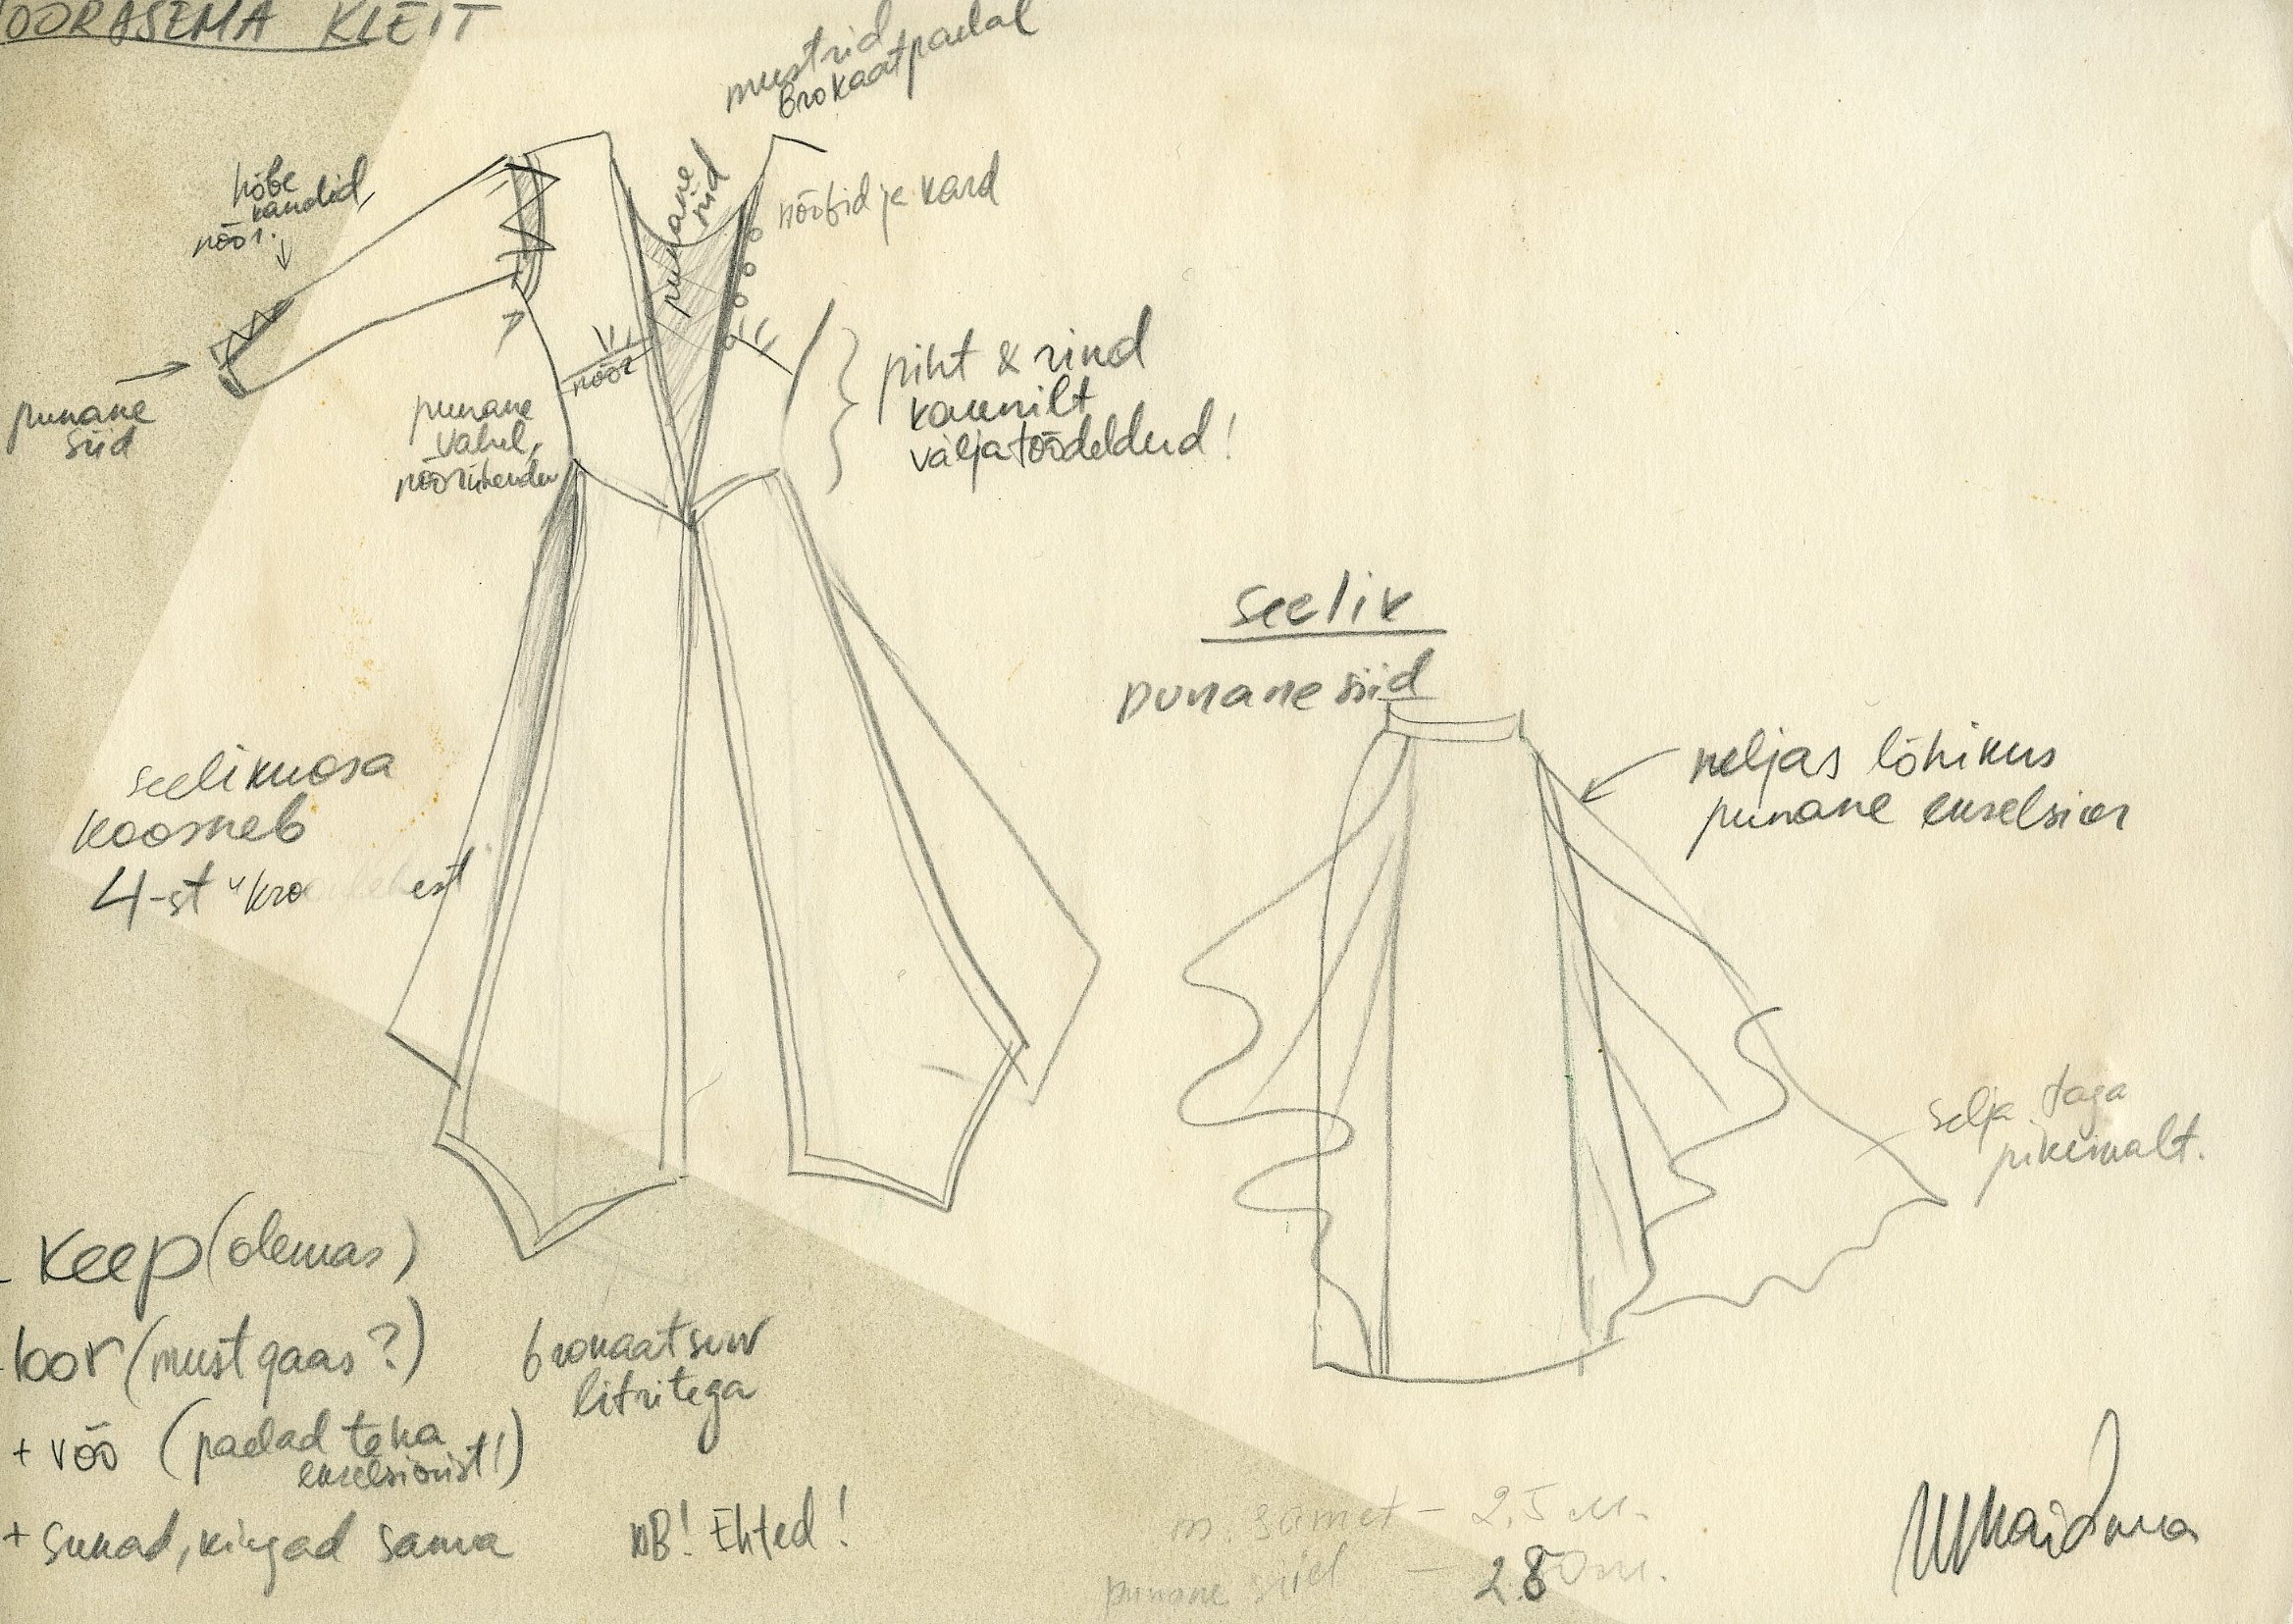 OORASEMA KLEIT
mustrid
brokaatpaelal
hõbe
kandid,
nöör.
punane
siid
nööbid ja kard
nöör
punane
siid
punane
vahel,
piht & rind
kaunilt
väljatöödeldud!
seelik
punane siid
neljas lõhikus
punane ekselsior
seelikuosa
koosneb
4-st "kroonlehest
selja taga
pikemalt.
- Keep (olemas)
- loor (must gaas?)
brokaat suur
litritega
+ vöö (paelad teha
ekselsiorist!)
+ sukad, kingad sama
NB! Ehted!
m. samet - 2,5 m.
punane siid - 2.80 m.